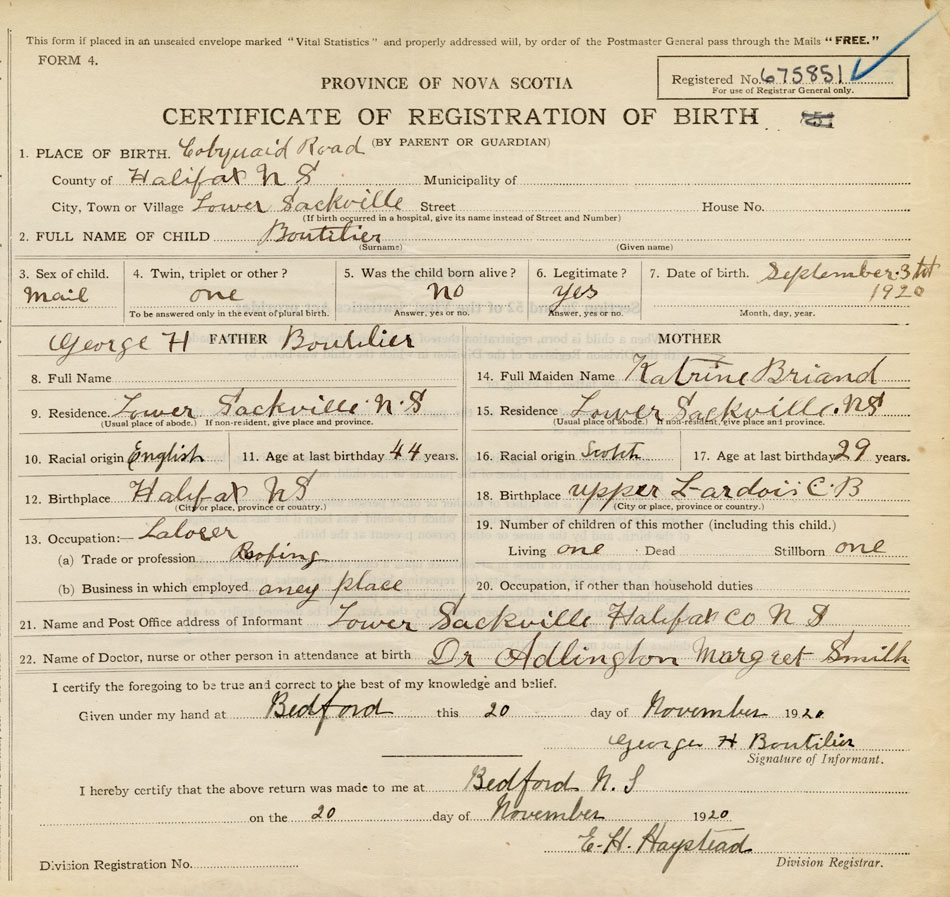 This form if placed in an unsealed envelope marked "Vital Statistics" and properly addressed will, by order of the Postmaster General pass through the Mails "FREE."
FORM 4.
Registered No. 675851
For use of Registrar General only.
PROVINCE OF NOVA SCOTIA
CERTIFICATE OF REGISTRATION OF BIRTH
(BY PARENT OR GUARDIAN)
1. PLACE OF BIRTH. Cobyquaid Road
County of Halifax N S Municipality of
City, Town or Village Lower Sackville Street House No.
(If birth occurred in a hospital, give its name instead of Street and Number)
2. FULL NAME OF CHILD Boutilier
(Surname) (Given name)
3. Sex of child. 4. Twin, triplet or other? 5. Was the child born alive? 6. Legitimate? 7. Date of birth. September 3
Mail one No yes 1920
To be answered only in the event of plural birth. Answer, yes or no. Answer, yes or no. Month, day, year.
George H FATHER Boutilier MOTHER
8. Full Name 14. Full Maiden Name Katrine Briand
9. Residence. Lower Sackville N.S 15. Residence Lower Sackville. NS
(Usual place of abode.) If non-resident, give place and province. (Usual place of abode.) If non-resident, give place and province.
10. Racial origin English 11. Age at last birthday 44 years. 16. Racial origin Scotch 17. Age at last birthday 29 years.
12. Birthplace Halifax NS 18. Birthplace upper L-ardois C.B
(City or place, province or country.) (City or place, province or country.)
13. Occupation:— Laborer 19. Number of children of this mother (including this child.)
(a) Trade or profession Roofing Living one Dead Stillborn one
(b) Business in which employed aney place 20. Occupation, if other than household duties
21. Name and Post Office address of Informant Lower Sackville Halifax CO N S
22. Name of Doctor, nurse or other person in attendance at birth Dr Adlington Margret Smith
I certify the foregoing to be true and correct to the best of my knowledge and belief.
Given under my hand at Bedford this 20 day of November 1920.
George H Boutilier
Signature of Informant.
I hereby certify that the above return was made to me at Bedford N. S
on the 20 day of November 1920
E. H. Haystead
Division Registration No. Division Registrar.